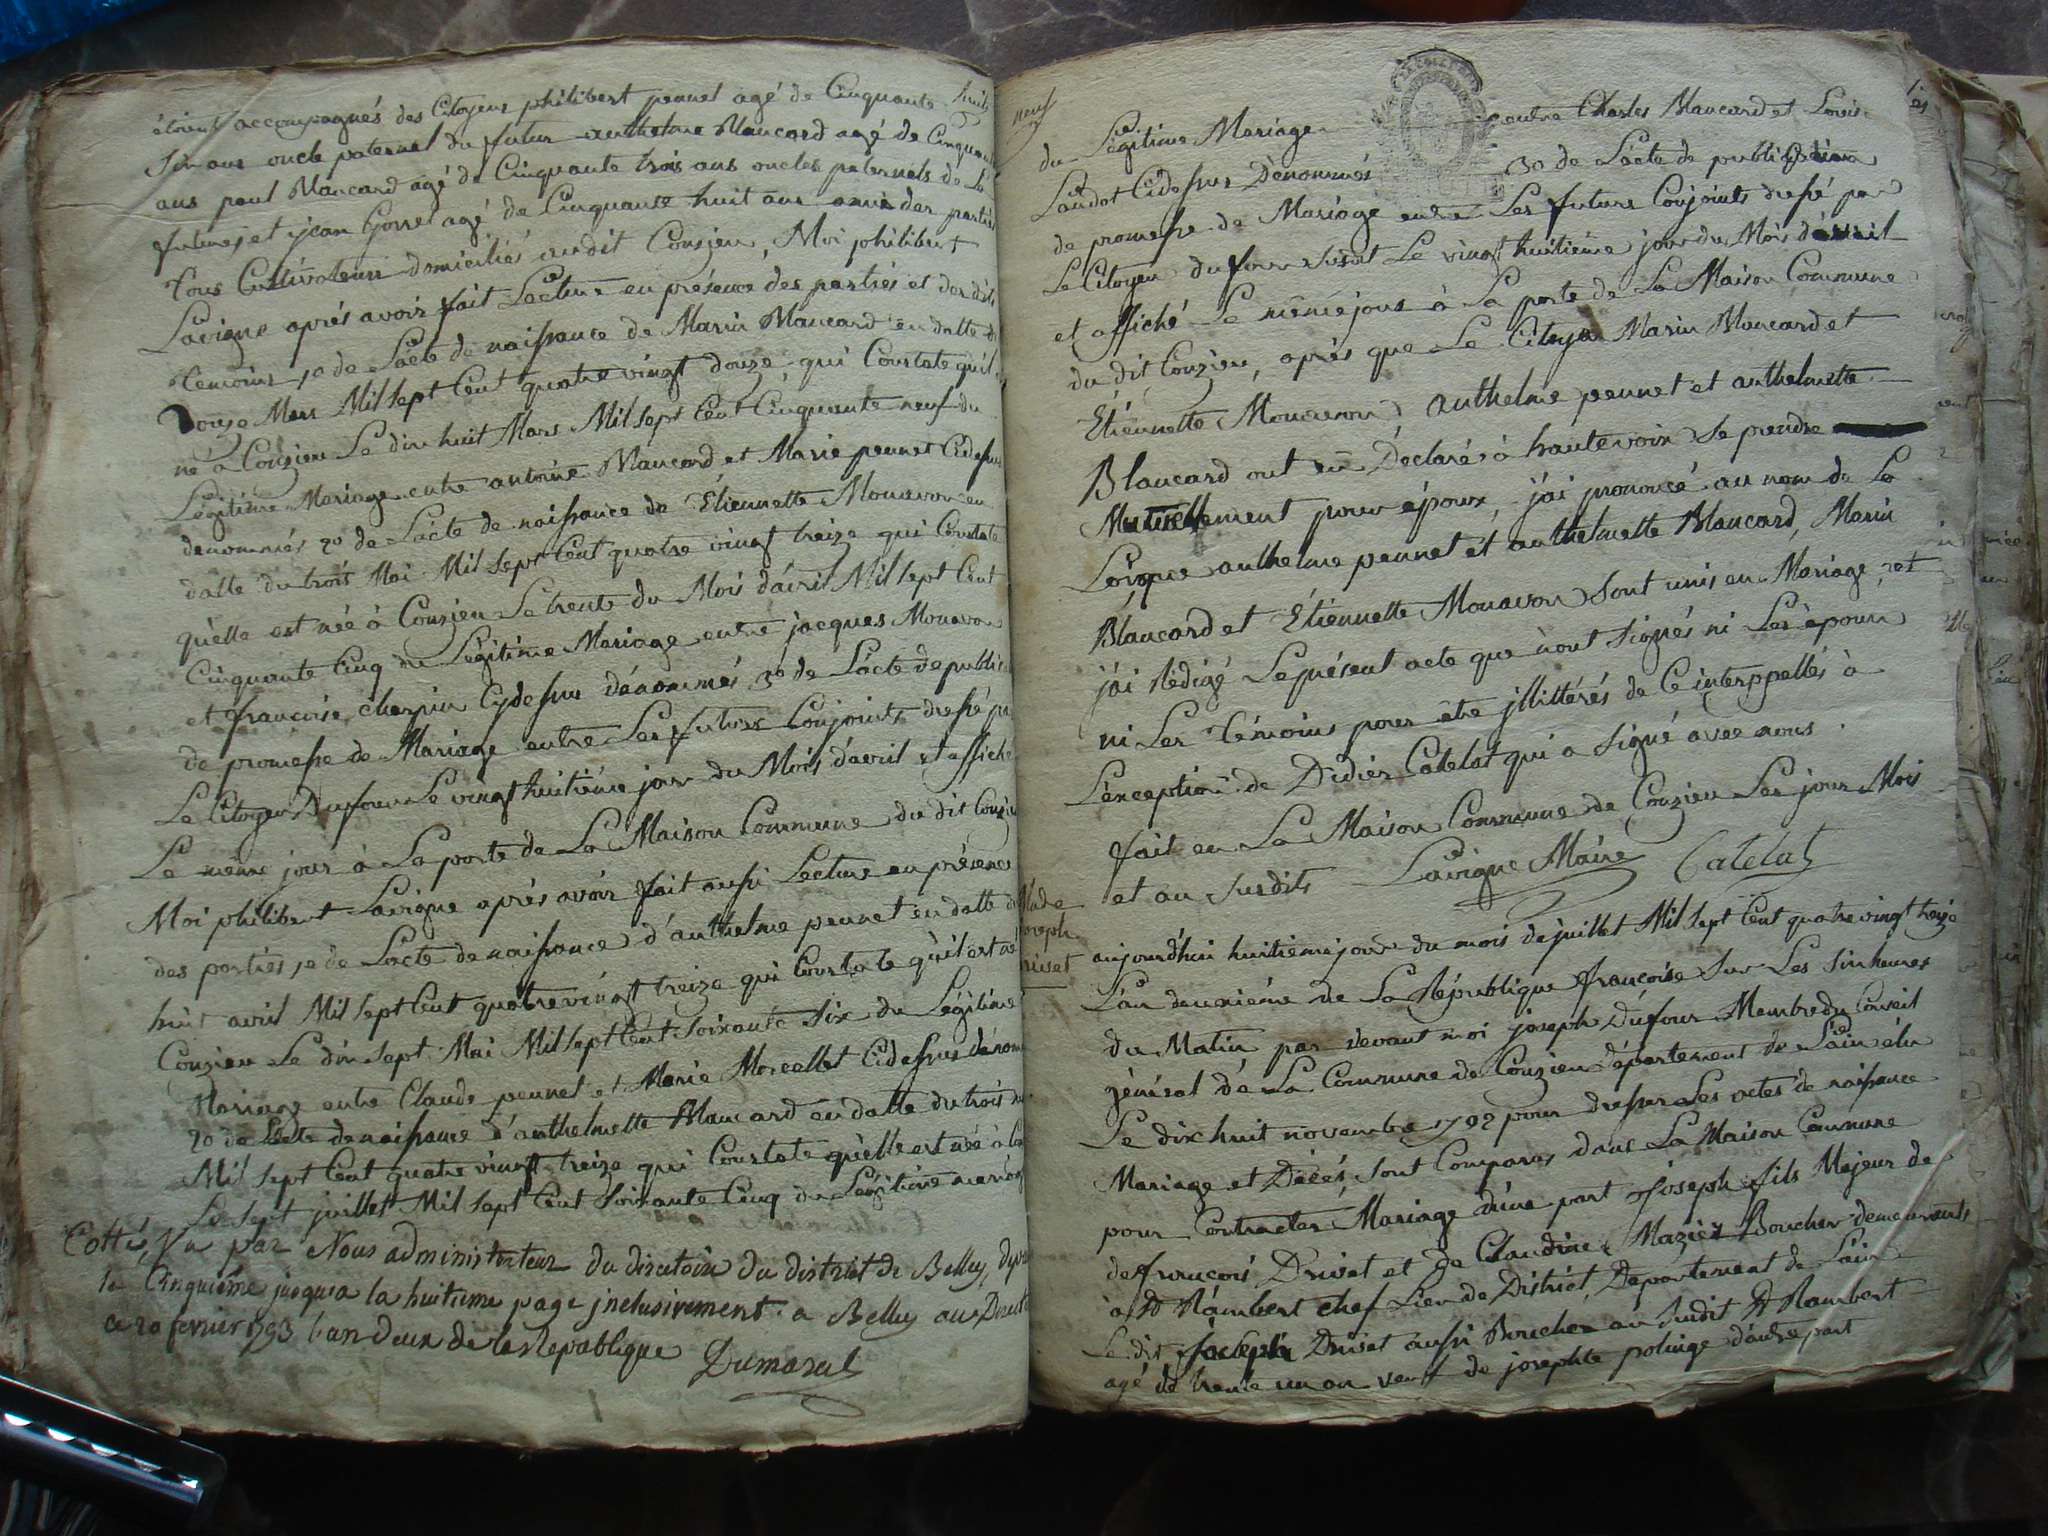 huit
étoient accompagnés des Citoyens philibert pennet agé de Cinquante
Six ans oncle paternel du futur anthelme Blancard agé de Cinquante
ans paul Blancard agé de Cinquante trois ans oncles paternels de La
future, et jean Gorrel agé de Cinquante huit ans amis des parties
tous Cultivateurs domiciliés audit Conzieu, Moi philibert
Lavigne aprés avoir fait Lecture en présence des parties et des dits
témoins 1o de L'acte de naissance de Marin Blancard en datte du
Douze Mars Mil sept Cent quatre vingt douze qui Constate qu'il
né a Conzieu Le dix huit Mars Mil sept Cent Cinquante neuf du
Légitime Mariage entre antoine Blancard et Marie pennet Cidessus
denommés 2o de L'acte de naissance de Étiennette Monavon en
datte du trois Mai Mil sept Cent quatre vingt treize qui Constate
qu'elle est née à Conzieu Le trente du Mois d'avril Mil sept Cent
Cinquante Cinq du Légitime Mariage entre jacques Monavon
et francoise cherpin Cydessus dénommés, 3o de L'acte de public
de promesse de Mariage entre Les futurs Conjoints dressé par
Le Citoyen Dufour Le vingt huitiéme jour du Mois d'avril et affiché
Le même jour à La porte de La Maison Commune du dit Conzieu
Moi philibert Lavigne aprés avoir fait aussi Lecture en présence
des parties 1o de L'acte de naissance d'anthelme pennet en datte du
huit avril Mil sept Cent quatre vingt treize qui Constate qu'il est né
Conzieu Le dix sept Mai Mil sept Cent Soixante Six du Légitime
Mariage entre Claude pennet et Marie Morcellet Cidessus dénom
2o de L'acte de naissance d'anthelmette Blancard en datte du trois du
Mil sept Cent quatre vingt treize qui Constate qu'elle est née à Con
Le sept juillet Mil sept Cent Soixante Cinq du Légitime mariage
Cotté, par Nous administrateur du directoire du district de Belley, depuis
la Cinquiéme jusqu'a la huitieme page jnclusivement a Belley au Direct
ce 20 fevrier 1793 l'an deux de la Republique
Dumaral
neuf
du Légitime Mariage entre Charles Blancard et Louise
Landot Cidessus Dénommés 3o de L'acte de publication
de promesse de Mariage entre Les futurs Conjoints dressé par
Le Citoyen dufour susdit Le vingt huitiéme jour du Mois d'avril
et affiché Le même jour à La porte de La Maison Commune
du dit Conzieu, aprés que Le Citoyen Marin Blancard et
Étiennette Monavon, anthelme pennet et anthelmette
Blancard ont eu Déclaré à haute voix Se prendre
Mutuellement pour époux, j'ai prononcé au nom de La
Loi que anthelme pennet et anthelmette Blancard, Marin
Blancard et Étiennette Monavon Sont unis en Mariage, et
j'ai Rédigé Le présent acte que n'ont Signés ni Les époux
ni Les témoins pour être jllittérés de Ce interppellés à
L'exception de Didier Catelat qui a Signé avec nous.
fait en La Maison Commune de Conzieu Les jour Mois
et an Susdits Lavigne Maire Catelat
joseph
Driset
aujourd'hui huitieme jour du mois de juillet Mil sept Cent quatre vingt treize
L'an deuxiéme de La République francoise Sur Les Six heures
du Matin par devant moi joseph Dufour Membre du Conseil
général de La Commune de Conzieu département de L'ain élu
Le dix huit novembre 1792 pour dresser Les actes de naissance
Mariage et Décés, Sont Comparus dans La Maison Commune
pour Contracter Mariage d'une part joseph fils Majeur de
de francois Driset et de Claudine Mazier Boucher demeurants
à St Rambert chef Lieu de District, Departement de L'ain
Le dit joseph Driset aussi Boucher au Susdit St Rambert
agé de trente un an veuf de josephte polinge d'autre part